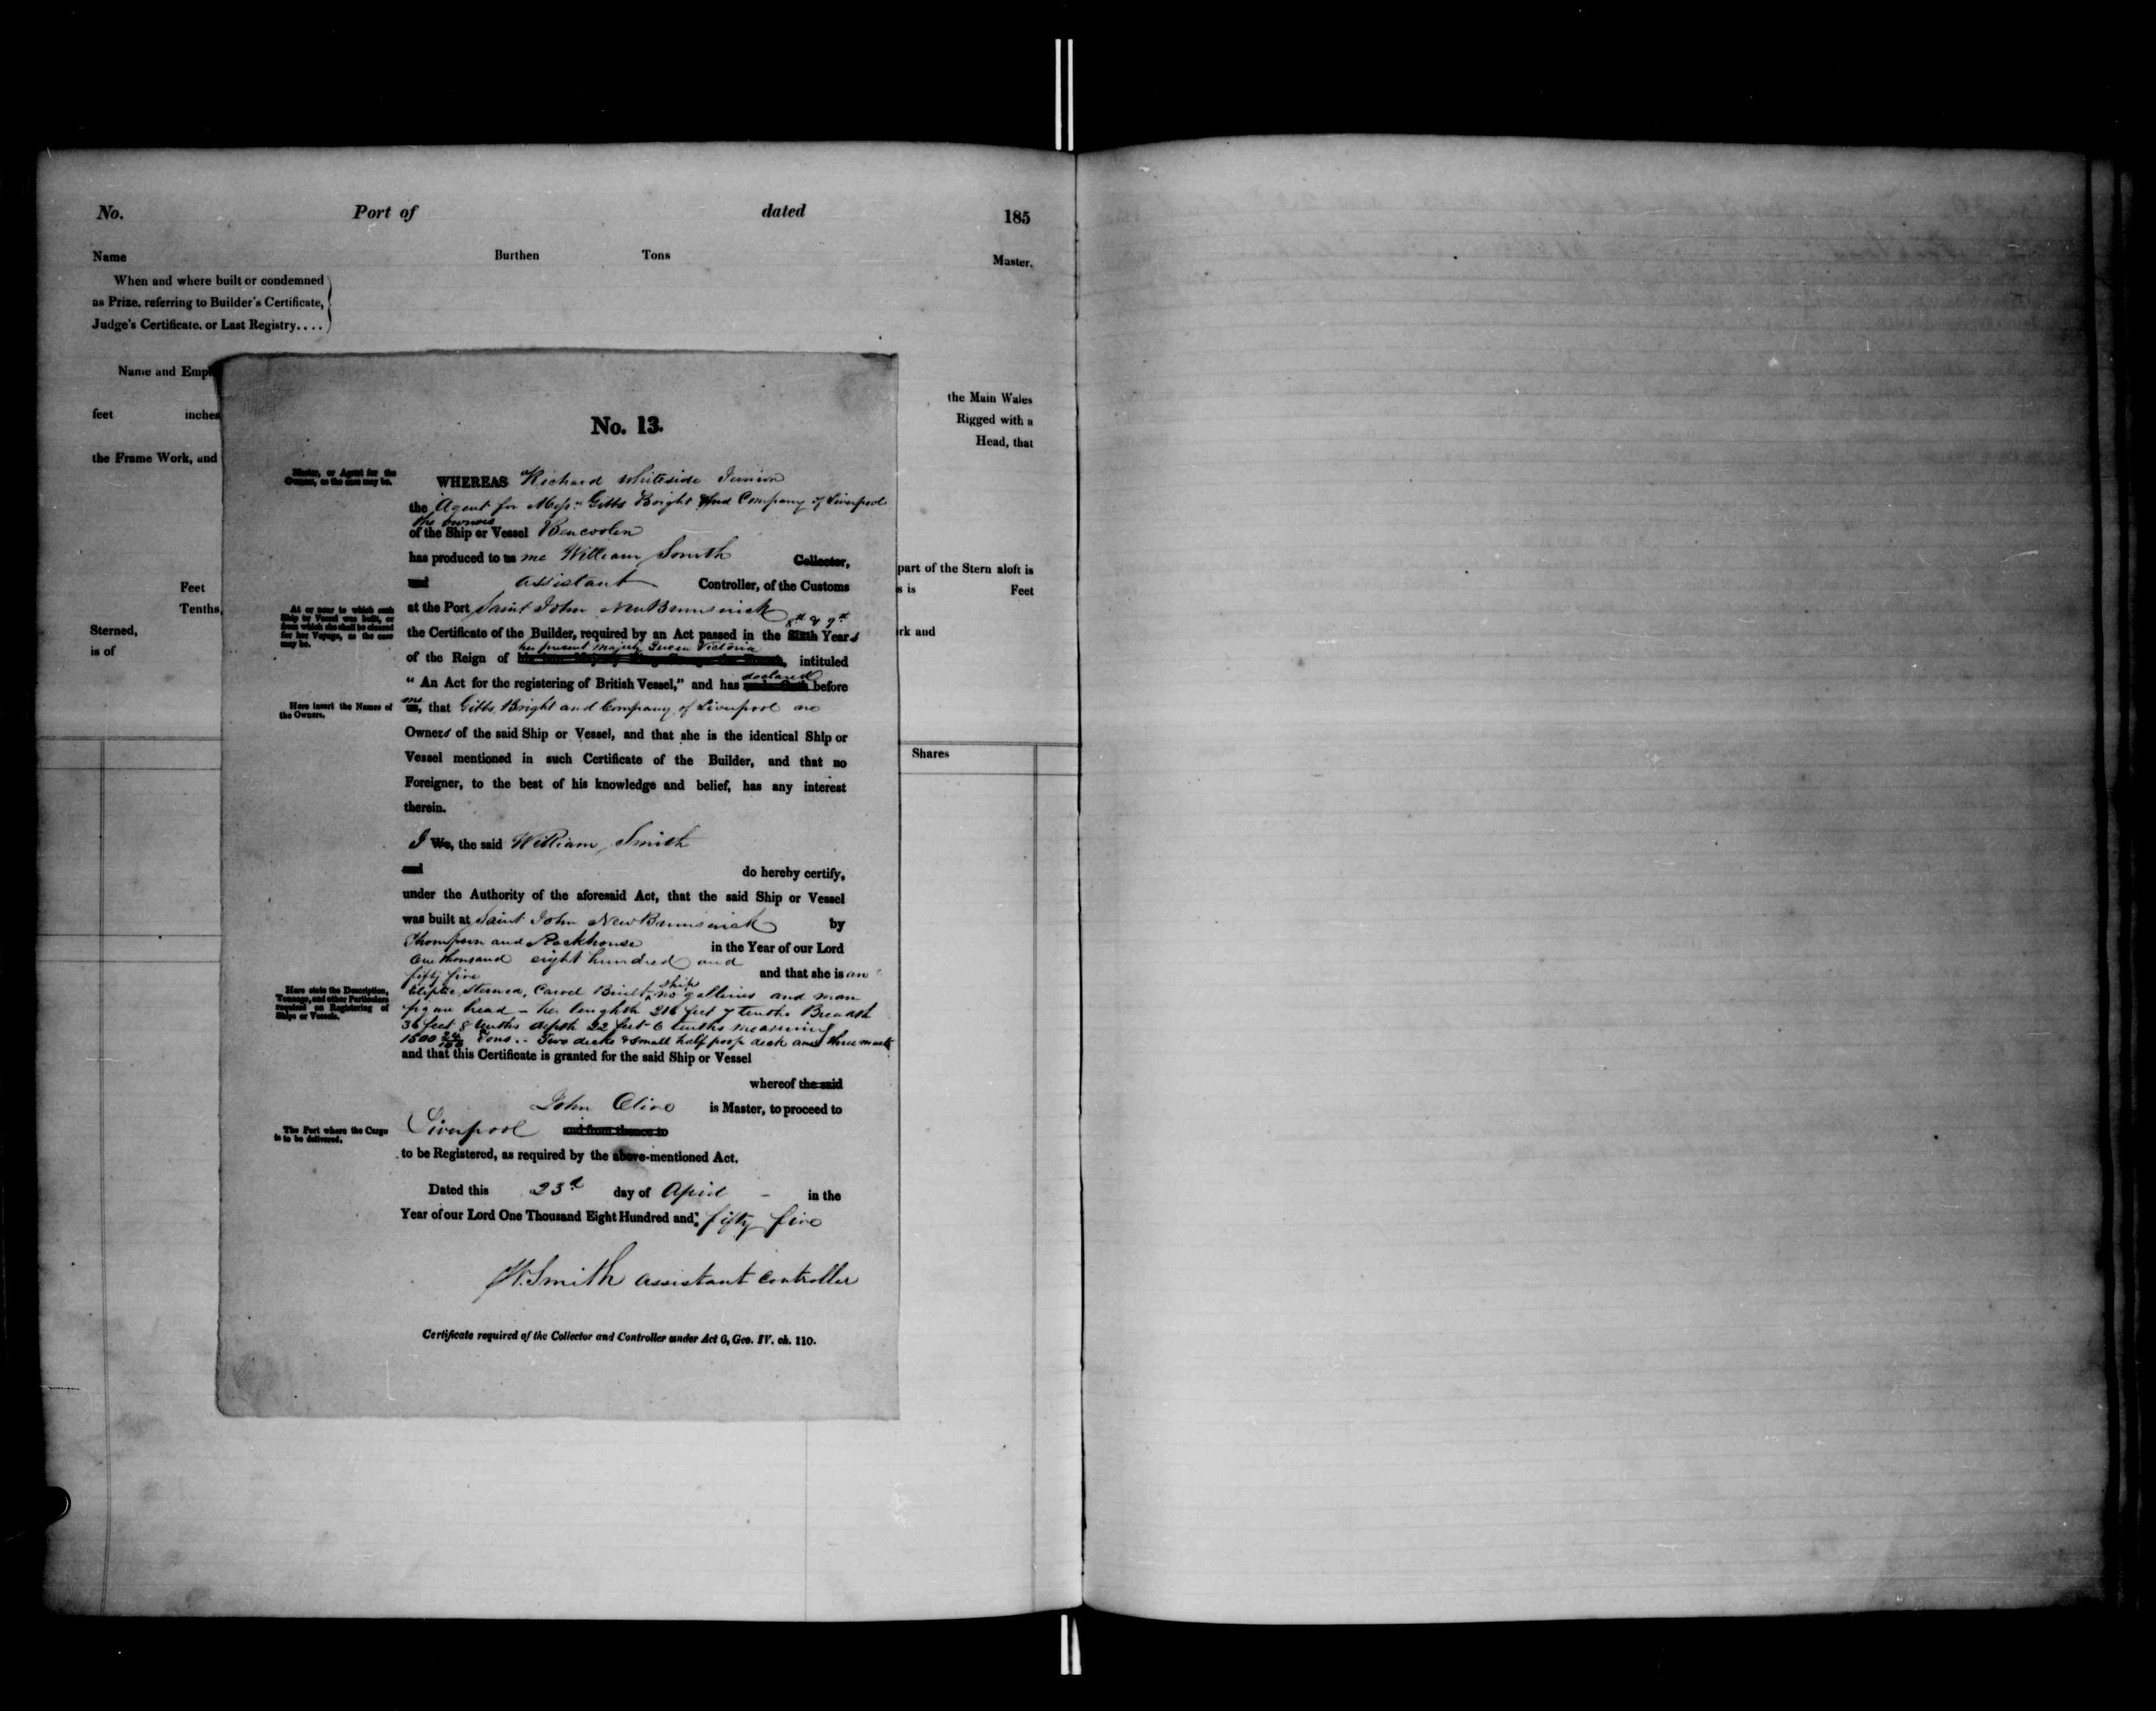 No. Port of dated 185
Name Burthen Tons Master.
When and where built or condemned
as Prize, referring to Builder's Certificate,
Judge's Certificate, or Last Registry....
Name and Empl
feet inches
the Frame Work, and
Feet
Tenths,
Sterned,
is of
the Main Wales
Rigged with a
Head, that
part of the Stern aloft is
s is Feet
rk and
Shares
No. 13.
Master, or Agent for the
Owners, as the case may be.
WHEREAS Richard Whiteside Junior
the Agent for Messrs Gibbs Bright And Company of Liverpool
the owners
of the Ship or Vessel Bencoolen
has produced to us me William Smith Collector,
and assistant Controller, of the Customs
At or near to which such
Ship or Vessel was built, or
from which she shall be cleared
for her Voyage, as the case
may be.
at the Port Saint John New Brunswick
8th & 9th
the Certificate of the Builder, required by an Act passed in the Sixth Years
her present Majesty Queen Victoria
of the Reign of his late Majesty King George the Fourth, intituled
declared
“ An Act for the registering of British Vessel,” and has made Oath before
Here insert the Names of
the Owners.
me
us, that Gibbs, Bright and Company of Liverpool are
Owners of the said Ship or Vessel, and that she is the identical Ship or
Vessel mentioned in such Certificate of the Builder, and that no
Foreigner, to the best of his knowledge and belief, has any interest
therein.
I We, the said William Smith
and do hereby certify,
under the Authority of the aforesaid Act, that the said Ship or Vessel
was built at Saint John New Brunswick by
Thompson and Stackhouse in the Year of our Lord
One thousand eight hundred and
fifty five and that she is an
Here state the Description,
Tonnage, and other Particulars
required on Registering of
Ships or Vessels.
ship
Eliptic Sterned, Carvel Built, no galleries and man
figure head - her lenghth 216 feet 7 tenths Breadth
36 feet 8 tenths depth 22 feet 6 tenths measuring
1500 24/100 Tons.- Two decks & small half poop deck and three masts
and that this Certificate is granted for the said Ship or Vessel
whereof the said
John Clive is Master, to proceed to
The Port where the Cargo
is to be delivered.
Liverpool and from thence to
to be Registered, as required by the above-mentioned Act.
Dated this 23d day of April - in the
Year of our Lord One Thousand Eight Hundred and fifty five
W. Smith assistant Controller
Certificate required of the Collector and Controller under Act 6, Geo. IV. ch. 110.